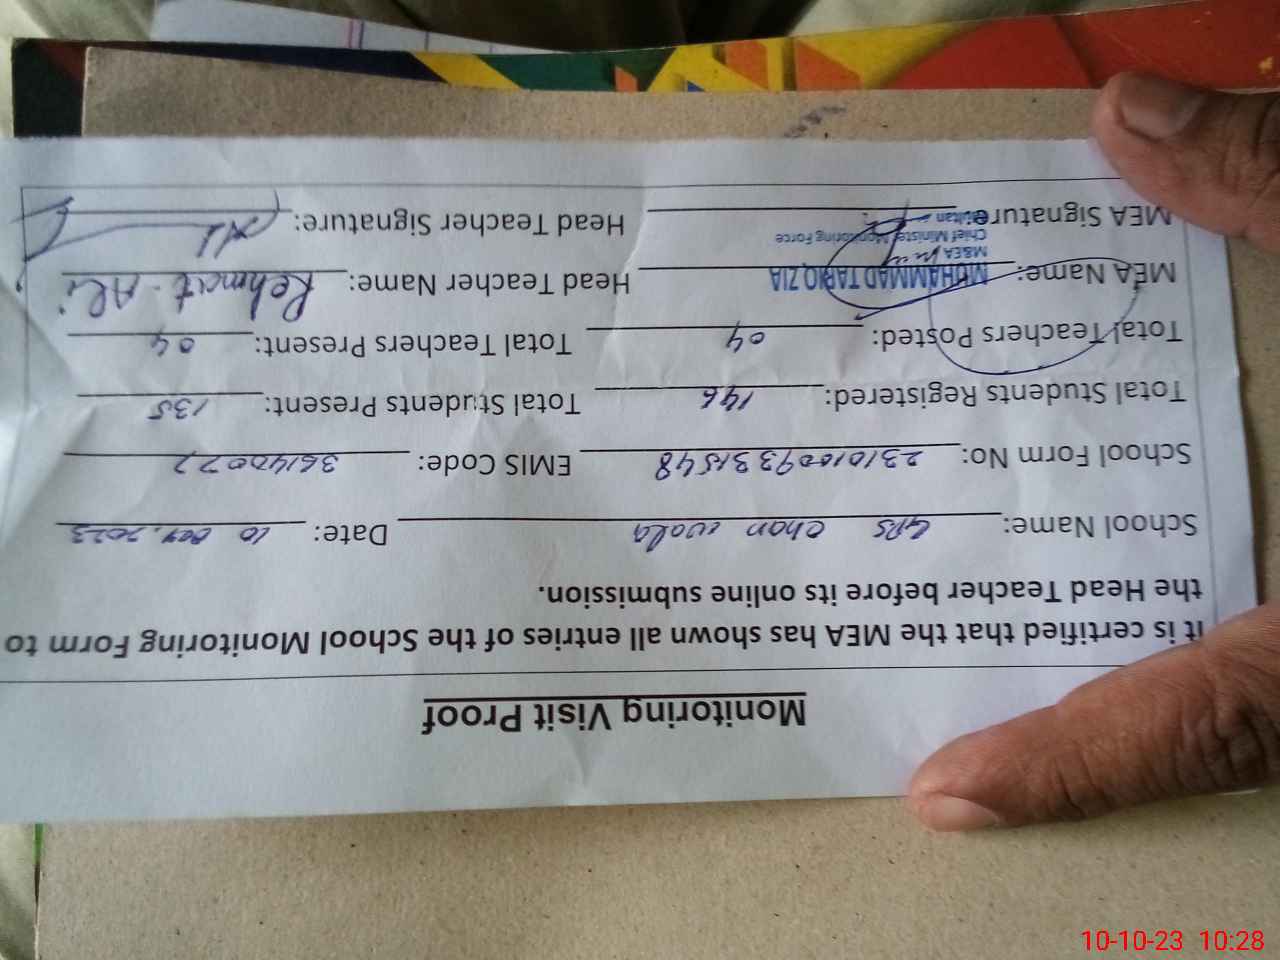 Monitoring Visit Proof
It is certified that the MEA has shown all entries of the School Monitoring Form to
the Head Teacher before its online submission.
School Name: GPS Chan wala Date: 10 Oct, 2023
School Form No: EMIS Code:
Total Students Registered: 146 Total Students Present: 135
Total Teachers Posted: 04 Total Teachers Present: 04
MEA Name: MUHAMMAD TARIQ ZIA Head Teacher Name: Rehmat Ali
M&EA
Chief Minister Monitoring Force
MEA Signature: Head Teacher Signature:
10-10-23 10:28